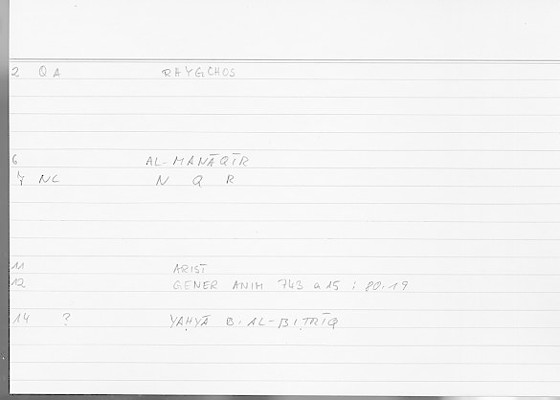 2 QA RAYGCHOS
6 AL-MANĀQĪR
7 NL N Q R
11 ARIST
12 GENER ANIM 743 a 15 : 80,19
14 ? YAḤYĀ B. AL-BIṬRĪQ